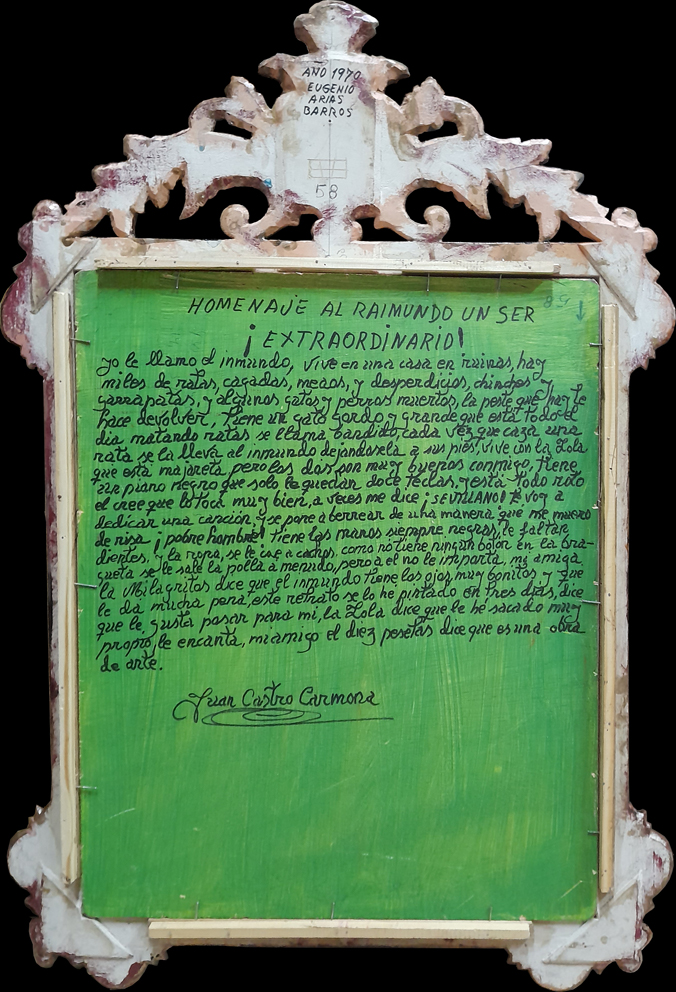 AÑO 1970
EUGENIO
ARIAS
BARROS
58
HOMENAJE AL RAIMUNDO UN SER
¡EXTRAORDINARIO!
yo le llamo el inmundo, vive en una casa en ruinas, hay
miles de ratas, cagadas, meaos, y desperdicios, chinches y
garrapatas, y algunos gatos y perros muertos, la peste que hay te
hace devolver, tiene un gato gordo y grande que está todo el
dia matando ratas se llama bandido cada vez que caza una
rata se la lleva al inmundo dejandosela a sus pies, vive con la Lola
que está majareta pero los dos son muy buenos conmigo, tiene
un piano negro que solo le quedan doce teclas, y está todo roto
el cree que lo toca muy bien, a veces me dice ¡SEVILLANO! te voy a
dedicar una canción, y se pone a berrear de una manera que me muero
de risa ¡pobre hombre! tiene las manos siempre negras, le faltan
dientes, y la ropa, se le cae a cachos, como no tiene ningun boton en la bra-
gueta se le sale la polla a menudo, pero a el no le importa, mi amiga
la Milagritos dice que el inmundo tiene los ojos muy bonitos, y que
le da mucha pena, este retrato se lo he pintado en tres dias, dice
que le gusta posar para mi, la Lola dice que le he sacado muy
propio, le encanta, mi amigo el diez pesetas dice que es una obra
de arte.
Juan Castro Carmona